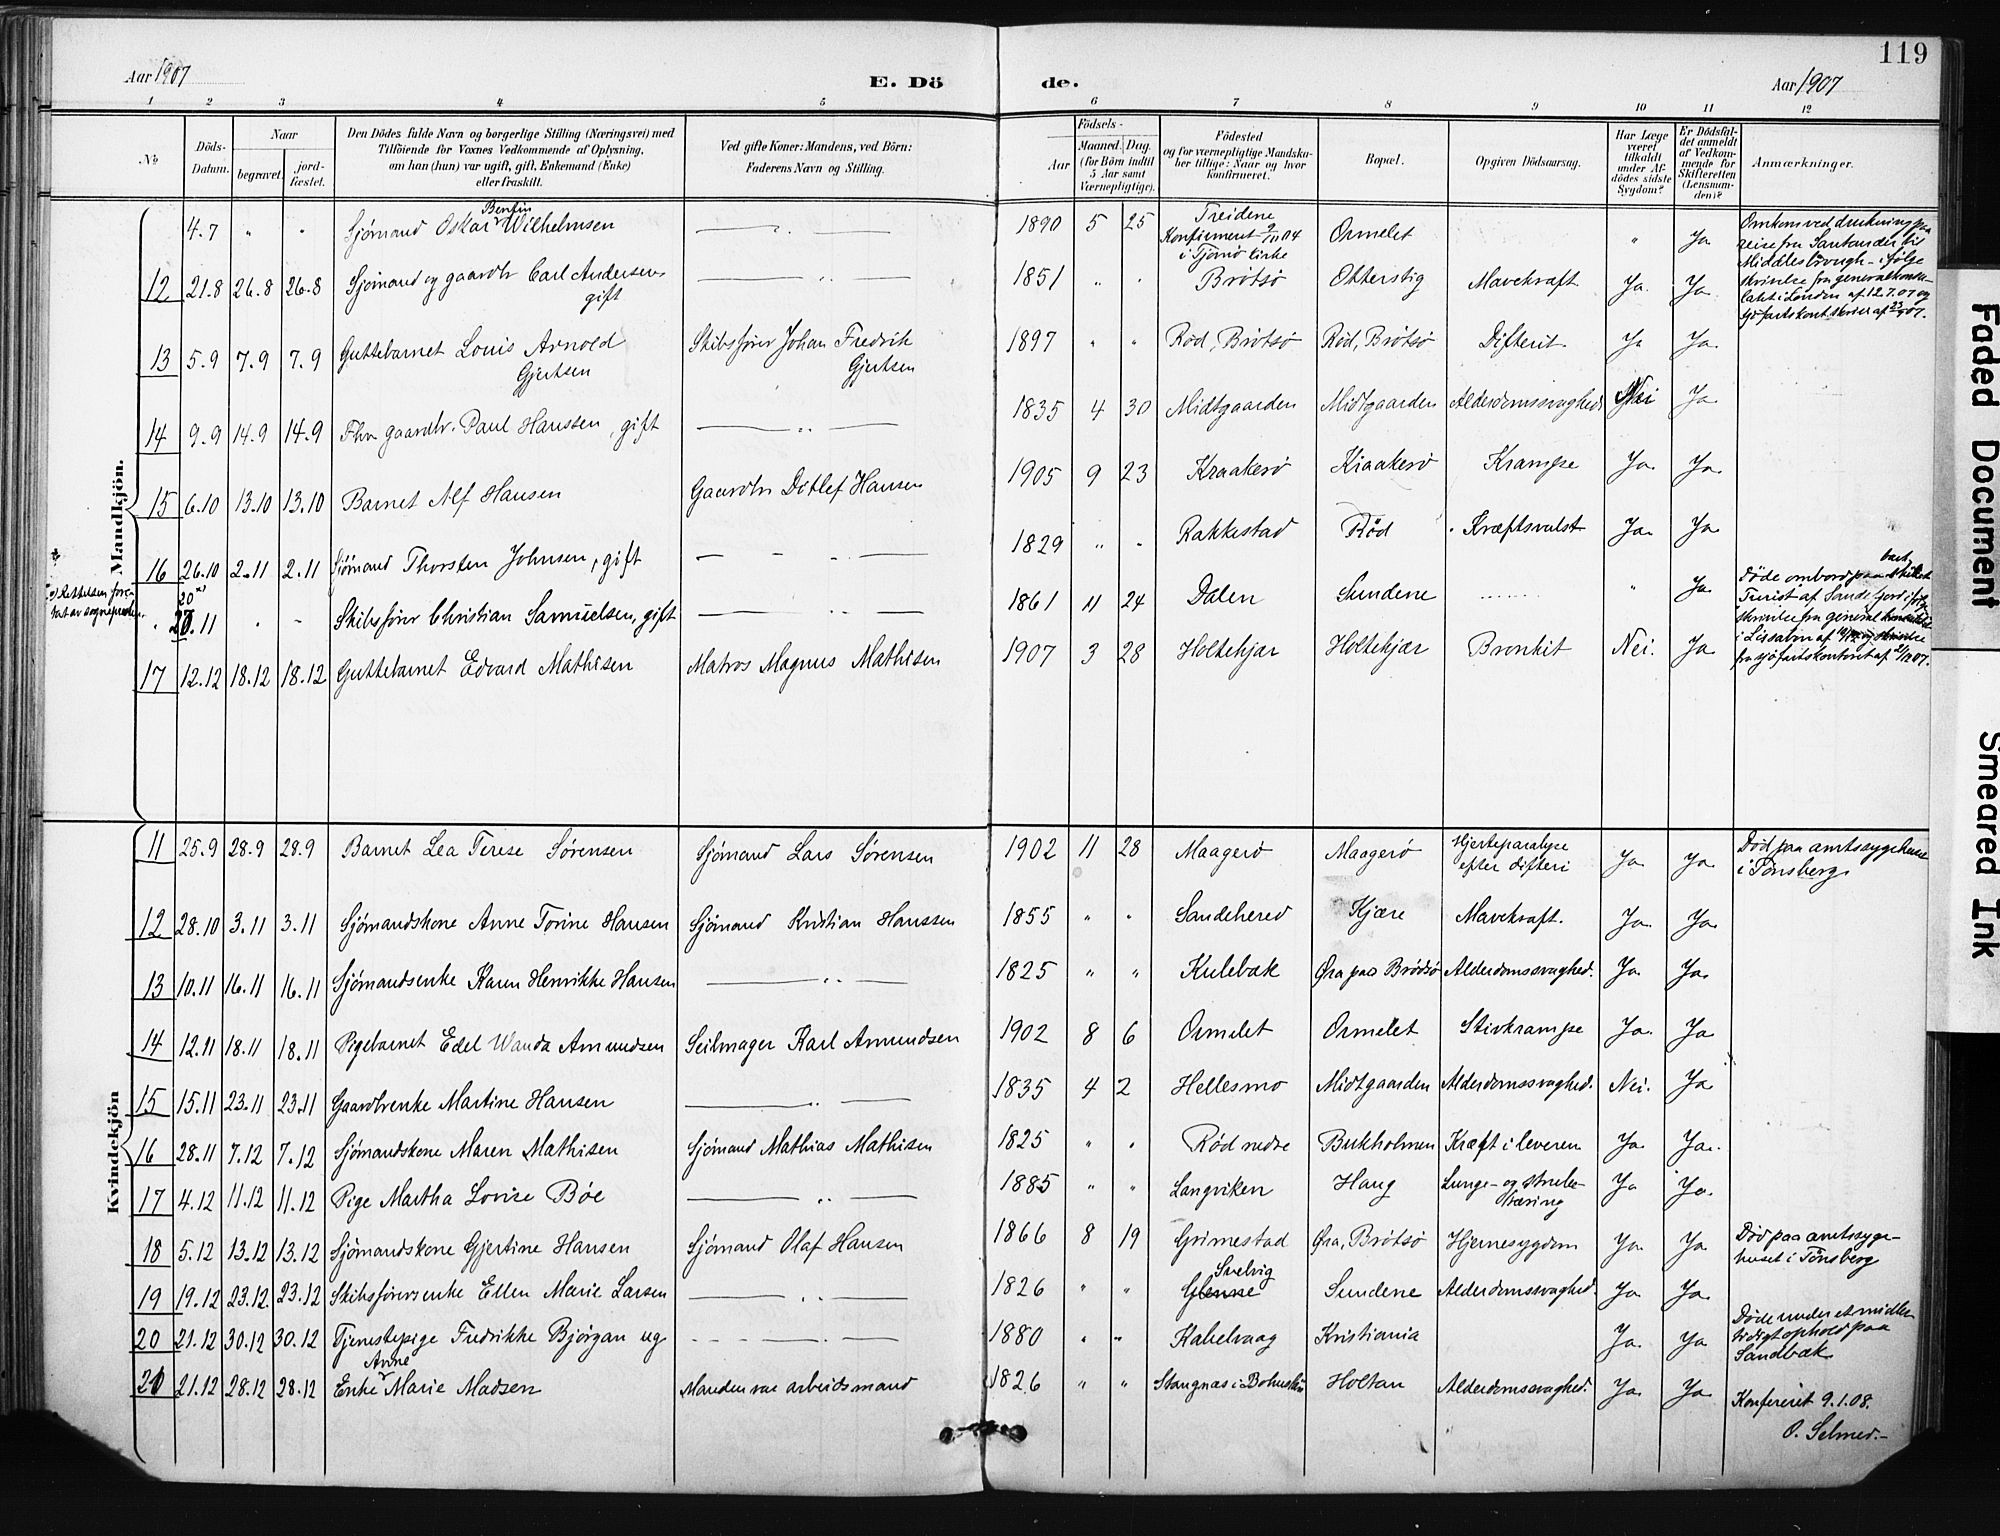 119
Aar 1907 E. Dö de. Aar 1907
1 2 3 4 5 6 7 8 9 10 11 12
No Döds-Datum. Naar begravet. jord-fæstet. Den Dödes fulde Navn og borgerlige Stilling (Næringsvei) med Tilföiende for Voxnes Vedkommende af Oplysning, om han (hun) var ugift, gift, Enkemand (Enke) eller fraskilt. Ved gifte Koner: Mandens, ved Börn: Faderens Navn og Stilling. Födsels- Aar Maaned. Dag. (for Börn indtil 5 Aar samt Værnepligtige). Födested og for værnepligtige Mandskaber tillige: Naar og hvor konfirmeret. Bopæl. Opgiven Dödsaarsag. Har Læge været tilkaldt under Afdödes sidste Sygdom? Er Dödsfaldet anmeldt af Vedkommende for Skifteretten (Lensmanden)? Anmærkninger.
Mandkjön.
4.7 " " Sjömand Oskar Bentin Wilhelmsen — " — 1890 5 25 Treidene Konfirmeret 9/11 04 i Tjömö kirke Ormelet " Ja Omkom ved drukning paa reise fra Santander til Middlesbrough - ifölge skrivelse fra generalkonsulatet i London af 12.7.07 og
12 21.8 26.8 26.8 Sjömand og gaardbr Carl Andersen gift — " — 1851 " " Brötsö Otterstig Mavekræft Ja Ja
13 5.9 7.9 7.9 Guttebarnet Louis Arnold Gjertsen Skibsförer Johan Fredrik Gjertsen 1897 " " Röd, Brötsö Röd, Brötsö Difterit Ja Ja
14 9.9 14.9 14.9 Fhv gaardbr. Paul Hanssen, gift — " — 1835 4 30 Midtgaarden Midtgaarden Alderdomssvaghed Nei Ja
15 6.10 13.10 13.10 Barnet Alf Hansen Gaardbr Ditlef Hansen 1905 9 23 Kraakerö Kraakerö Krampe Ja Ja
16 26.10 2.11 2.11 Sjömand Thorsten Johnsen, gift — " — 1829 " " Rakkestad Röd Kræftsvulst Ja Ja
x) Rettelsen foretat av sognepresten.
20 x) 27.11 " " Skibsförer Christian Samuelsen, gift — " — 1861 11 24 Dalen Sundene " Ja Döde ombord paa bark skibet Turist af Sandefjord ifölge skrivelse fra generalkonsulatet i Lissabon af og skrivelse fra sjöfartskontoret af 21/12 07.
17 12.12 18.12 18.12 Guttebarnet Edvard Mathisen Matros Magnus Mathisen 1907 3 28 Holtekjær Holtekjær Bronkit Nei. Ja
Kvindekjön
11 25.9 28.9 28.9 Barnet Lea Terese Sörensen Sjömand Lars Sörensen 1902 11 28 Maagerö Maagerö Hjerteparalyse efter difteri Ja Ja Död paa amtssygehuset i Tönsberg
12 28.10 3.11 3.11 Sjömandskone Anne Torine Hansen Sjömand Kristian Hanssen 1855 " " Sandehered Kjære Mavekræft. Ja Ja
13 10.11 16.11 16.11 Sjömandsenke Karen Henrikke Hansen — " — 1825 " " Kulebæk Öra paa Brödsö Alderdomssvaghed. Ja Ja
14 12.11 18.11 18.11 Pigebarnet Edel Wanda Amundsen Seilmager Karl Amundsen 1902 8 6 Ormelet Ormelet Stivkrampe Ja Ja
15 15.11 23.11 23.11 Gaardbrenke Martine Hansen — " — 1835 4 2 Hellesmo Midtgaarden Alderdomssvaghed. Nei. Ja
16 28.11 7.12 7.12 Sjömandskone Maren Mathisen Sjömand Mathias Mathisen 1825 " " Röd nedre Bukholmen Kræft i leveren Ja Ja.
17 4.12 11.12 11.12 Pige Martha Lovise Böe — " — 1885 " " Langviken Haug Lunge- og strubetæring Ja Ja.
18 5.12 13.12 13.12 Sjömandskone Gjertine Hansen Sjömand Olaf Hansen 1866 8 19 Grimestad Öra, Brötsö Hjernesygdom Ja Ja Död paa amtssygehuset i Tönsberg
19 19.12 23.12 23.12 Skibsförersenke Ellen Marie Larsen — " — 1826 " " Glenne Svelvig Sundene Alderdomssvaghed. Ja Ja
20 21.12 30.12 30.12 Tjenestepige Fredrikke Björgan ug — " — 1880 " " Kabelvaag Kristiania Ja Ja Döde under et midlertidigt ophold paa Sandbæk
21 21.12 28.12 28.12 Enke Anne Marie Madsen Manden var arbeidsmand 1826 " " Stangnæs i Bohuslän Holtan Alderdomssvaghed. Ja Ja
Konfereret 9.1.08.
O. Selmer.-
Faded Document
Smeared Ink